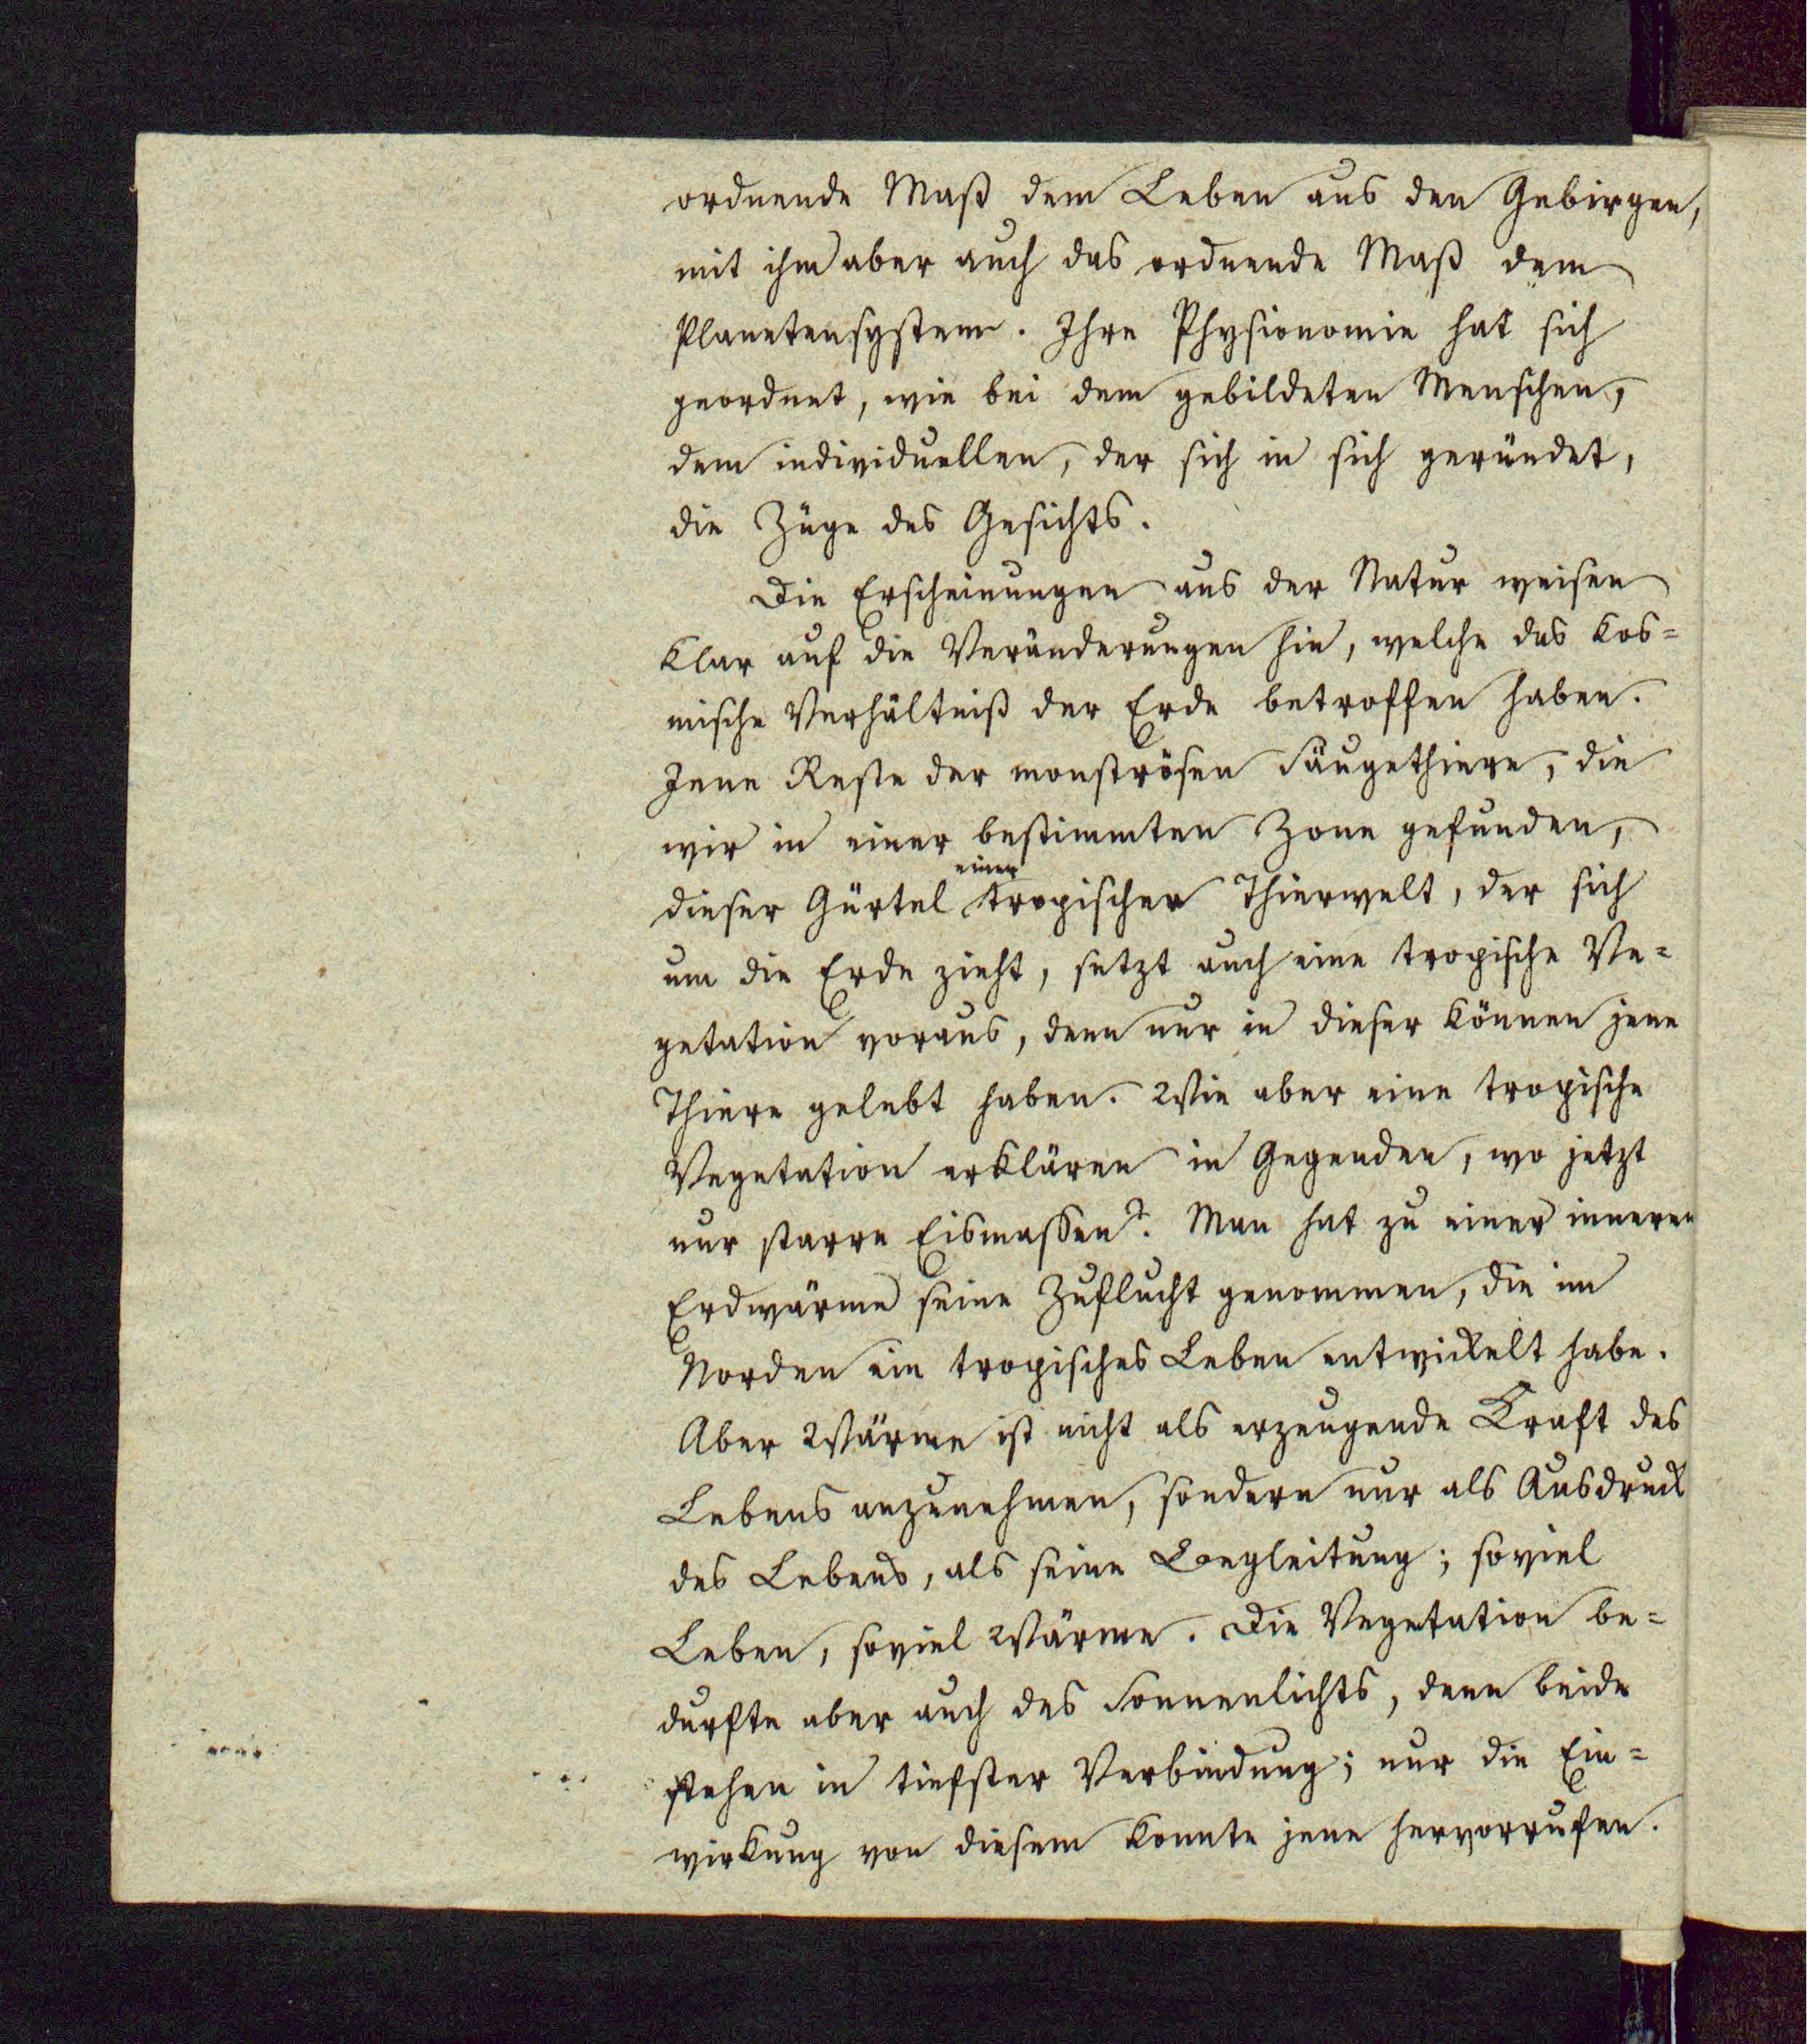 ordnende Maß dem Leben aus den Gebirgen,
mit ihm aber auch das ordnende Maß dem
Planetensystem. Ihre Physionomie hat sich
geordnet, wie bei dem gebildeten Menschen,
dem individuellen, der sich in sich geründet,
die Züge des Gesichts.
Die Erscheinungen aus der Natur weisen
klar auf die Veränderungen hin, welche das kos=
mische Verhältniß der Erde betroffen haben.
Jene Reste der monströsen Säugethiere, die
wir in einer bestimmten Zone gefunden,
dieser Gürtel einer tropischer Thierwelt, der sich
um die Erde zieht, setzt auch eine tropische Ve=
getation voraus, denn nur in dieser können jene
Thiere gelebt haben. Wie aber eine tropische
Vegetation erklären in Gegenden, wo jetzt
nur starre Eismassen? Man hat zu einer inneren
Erdwärme seine Zuflucht genommen, die im
Norden ein tropisches Leben entwickelt habe.
Aber Wärme ist nicht als erzeugende Kraft des
Lebens anzunehmen, sondern nur als Ausdruck
des Lebens, als seine Begleitung; soviel
Leben, soviel Wärme. Die Vegetation be=
durfte aber auch des Sonnenlichts, denn beide
stehen in tiefster Verbindung; nur die Ein=
wirkung von diesem konnte jene hervorrufen.